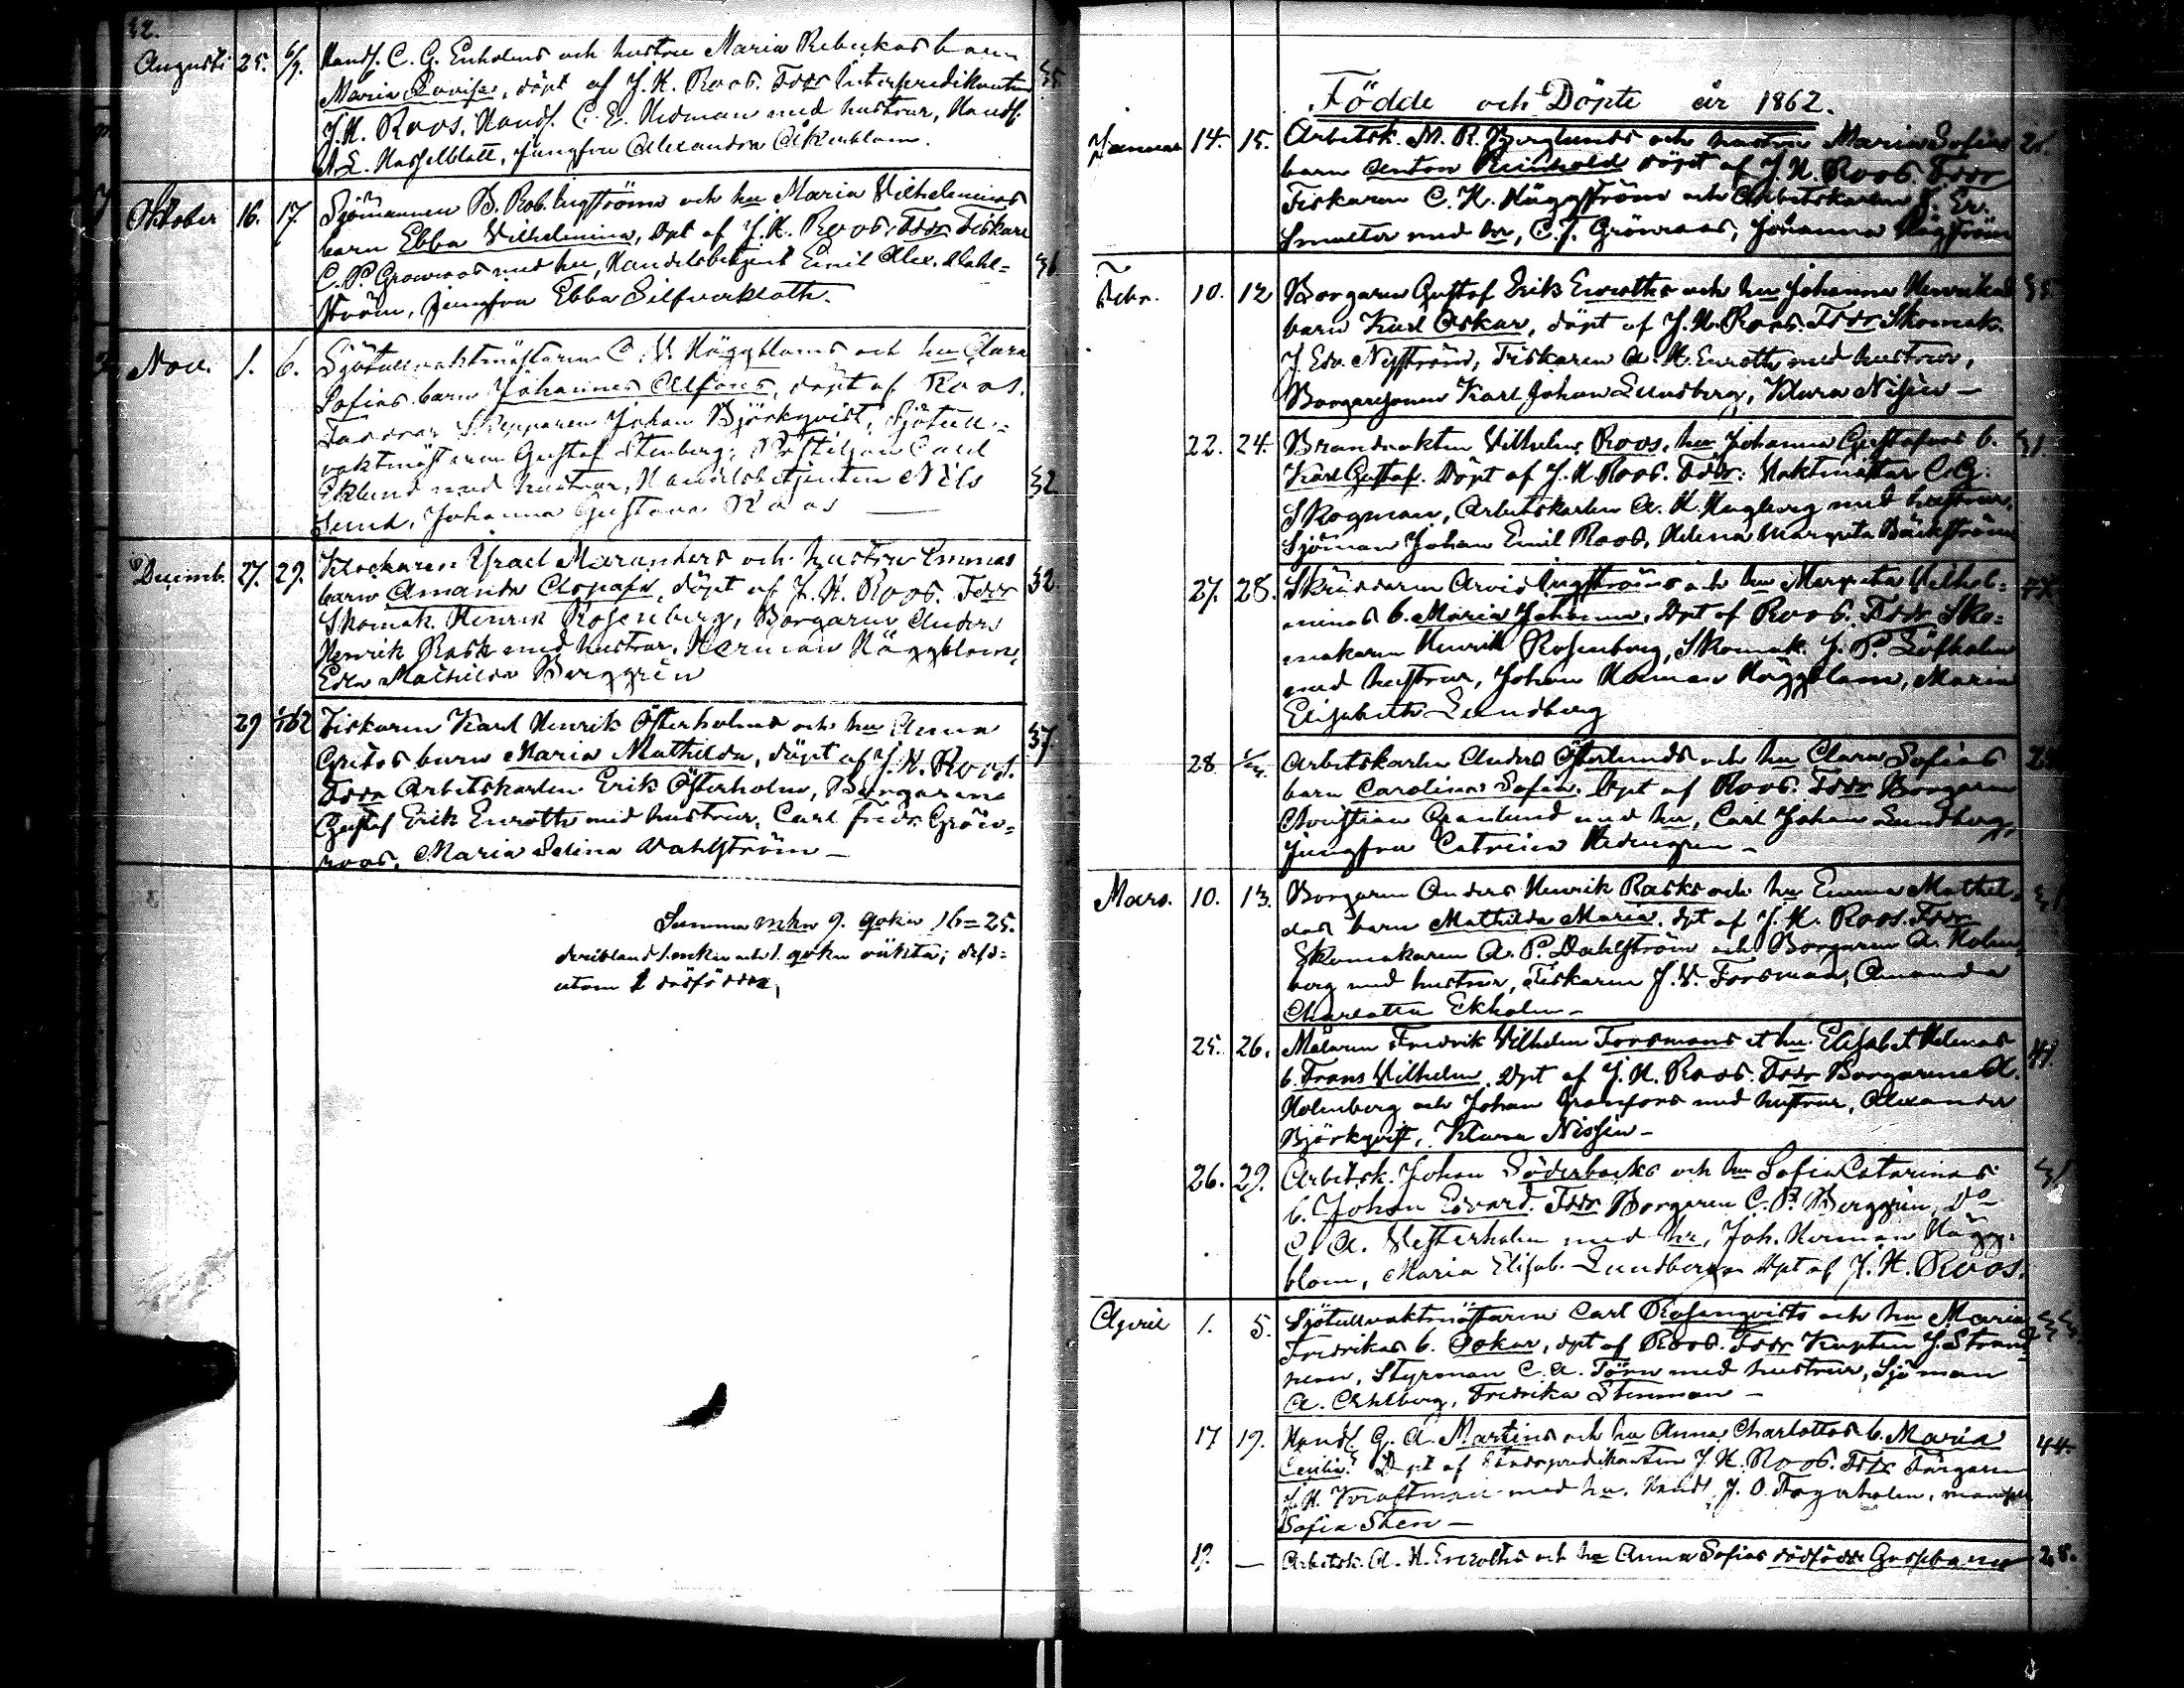 Augusti 25. 6/9. Handl. C. G. Enholms och hustru Maria Rebeckas barn
Maria Lovisa, döpt af J. H. Roos. Fddr Interpredikanten
J. H. Roos, Handl. C. E. Hedman med hustrur, Handl.
A. E. Hasselblatt, jungfru Alexandra Åkerblom.
Oktober 16. 17 Sjömannen B. Rob. Engströms och hu Maria Vilhelminas
barn Ebba Vilhelmina, dpt af J. H. Roos. Fddr Fiskare
C. P. Grönroos med hu, Handelsbetjent Emil Alex. Wahl=
ström, Jungfru Ebba Silfverkloth. 31
Nov. 1. 6. Sjötullvaktmästaren C. V. Häggbloms och hu Clara
Sofias barn Johannes Alfons, döpt af Roos.
Faddrar Skepparen Johan Björkqvist, Sjötull=
vaktmästaren Gustaf Stenberg, Postiljon Carl
Eklund med hustrur, Handelsbetjenten Nils
Sund, Johanna Gustava Roos — 32
Decemb. 27. 29. Klockaren Israel Maranders och hustru Emmas
barn Amanda Aspasia, döpt af J. H. Roos. Fddr 32
Skomak. Henrik Rosenberg, Borgaren Anders
Henrik Rask med hustrur, Herman Häggblom,
Edla Mathilda Berggrén
29 1/1 62 Fiskaren Karl Henrik Österholms och hu Anna
Gretas barn Maria Mathilda, döpt af J. H. Roos. 37.
Fddr Arbetskarlen Erik Österholm, Borgaren
Gustaf Erik Enroth med hustrur, Carl Fredr. Grön=
roos, Maria Selina Wahlström —
Summa mkn 9. qvkn 16 = 25.
deribland 1. mkn och 1. qvkn oäkta; dess=
utom 1 dödfödde,
Födde och Döpte år 1862.
Januari 14. 15. Arbetsk. M. R. Berglunds och hustru Maria Sofias
barn Anton Reinhold döpt af J. H. Roos. Fddr
Fiskaren C. H. Häggström och Arbetskarlen J. Er.
Smulter med hr, C. F. Grönroos, Johanna Hägström
Febr. 10. 12 Borgaren Gustaf Erik Enroths och hu Johanna Henrikas
barn Karl Oskar, döpt af J. H. Roos. Fddr Skomak.
J. Edv. Nyström, Fiskaren A. H. Enroth med hustrur,
Borgaresonen Karl Johan Lundberg, Klara Nissén —
22. 24. Brandvakten Vilhelm Roos, hu Johanna Gustafvas b.
Karl Gustaf. Döpt af J. H. Roos. Fddr: Vaktmästar C. G.
Skogman, Arbetskarlen A. H. Hagberg med hustrur,
Sjöman Johan Emil Roos, Helena Margreta Bäckström
27. 28. Skräddaren Arvid Engströms och hu Margreta Vilhel=
minas b. Maria Johanna, dpt af Roos. Fddr Sko=
makaren Henrik Rosenberg, Skomak. J. P. Löfholm
med hustrur, Johan Herman Häggblom, Maria
Elisabeth Lundberg
28 Arbetskarlen Anders Österlunds och hu Clara Sofias
barn Carolina Sofia. Dpt af Roos. Fddr Borgaren
Christian Granlund med hu, Carl Johan Lundberg,
Jungfru Catrina Hedengren —
Mars. 10. 13. Borgaren Anders Henrik Rasks och hu Emma Mathil=
das barn Mathilda Maria. dpt af J. H. Roos. Fddr
Skomakaren A. P. Dahlström och Borgaren A. Holm
berg med hustrur, Fiskaren J. V. Forsman, Amanda
Charlotta Ekholm —
25. 26. Målaren Fredrik Vilhelm Forsmans et hu. Elisabet Helenas
b. Frans Vilhelm. Dpt af J. H. Roos. Fddr Borgarena A.
Holmberg och Johan Granfors med hustrur, Alexander
Björkqvist, Klara Nissén —
26. 29. Arbetsk. Johan Söderbacks och hu Sofia Catarinas
b. Johan Edvard. Fddr Borgaren C. P. Berggrén, Do
C. A. Vesterholm med hr, Joh. Herman Hägg=
blom, Maria Elisab. Lundberg. Dpt af J. H. Roos.
April 1. 5. Sjötullvaktmästaren Carl Rosenqvists och hu Maria
Fredrikas b. Oskar, dpt af Roos. Fddr Kapten J. Stran=
nen, Styrman C. A. Törn med hustrur, Sjöman
A. Ahlberg, Fredrika Stenman —
17 19. Handl. G. A. Martins och hu Anna Charlottas b. Maria 44.
Cecilia. Dpt af Söndspredikanten J. H. Roos. Fddr Färgaren
J. H. Kraftman med hu. Handl. J. O. Fagerholm, mamsell
Sofia Sten —
19. — Arbetsk. A. H. Enroths och hu Anna Sofias dödfödde Gossebarn 28.